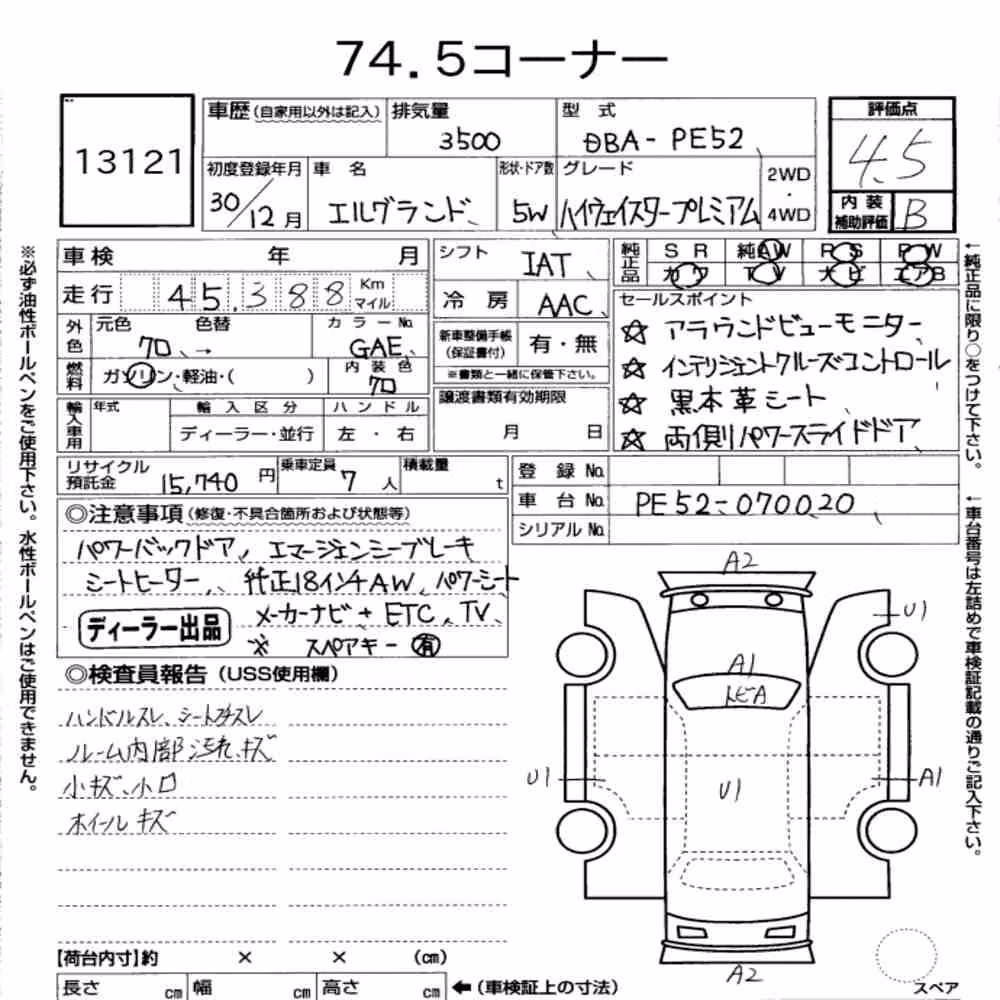 74.5コーナー
13121
車歴(自家用以外は記入) 排気量 3500 型 式 DBA-PE52
評価点 4.5
初度登録年月 30/12月 車 名 エルグランド 形状・ドア数 5W グレード ハイウェイスタープレミアム 2WD・4WD
内 装 補助評価 B
車検 年 月
シフト IAT
純正品 SR 純AW PS PW
カワ TV ナビ エアB
走行 45,388 Km マイル
冷 房 AAC
セールスポイント
☆ アラウンドビューモニター
☆ インテリジェントクルーズコントロール
☆ 黒本革シート
☆ 両側パワースライドドア
外色 元色 色替 カラーNo.
70 → GAE
新車整備手帳(保証書付) 有・無
※書類と一緒に保管下さい。
燃料 ガソリン・軽油・( ) 内装色 70
譲渡書類有効期限
月 日
輸入車用 年式 輸入区分 ハンドル
ディーラー・並行 左・右
リサイクル預託金 15,740 円 乗車定員 7 人 積載量 t
登 録 No.
車 台 No. PE52-070020
シリアル No.
◎注意事項(修復・不具合箇所および状態等)
パワーバックドア、エマージェンシーブレーキ
シートヒーター、純正18インチAW、パワーシート
メーカーナビ+ETC、TV
ディーラー出品
※ スペアキー 有
◎検査員報告(USS使用欄)
ハンドルスレ、シート
ルーム内部汚れ、キズ
小キズ、小凹
ホイールキズ
A2
U1
A1
トビA
U1
U1
A1
A2
スペア
【荷台内寸】約 × × (cm)
長さ cm 幅 cm 高さ cm ←(車検証上の寸法)
※必ず油性ボールペンをご使用下さい。水性ボールペンはご使用できません。
←純正品に限り○をつけて下さい。
←車台番号は左詰めで車検証記載の通りご記入下さい。